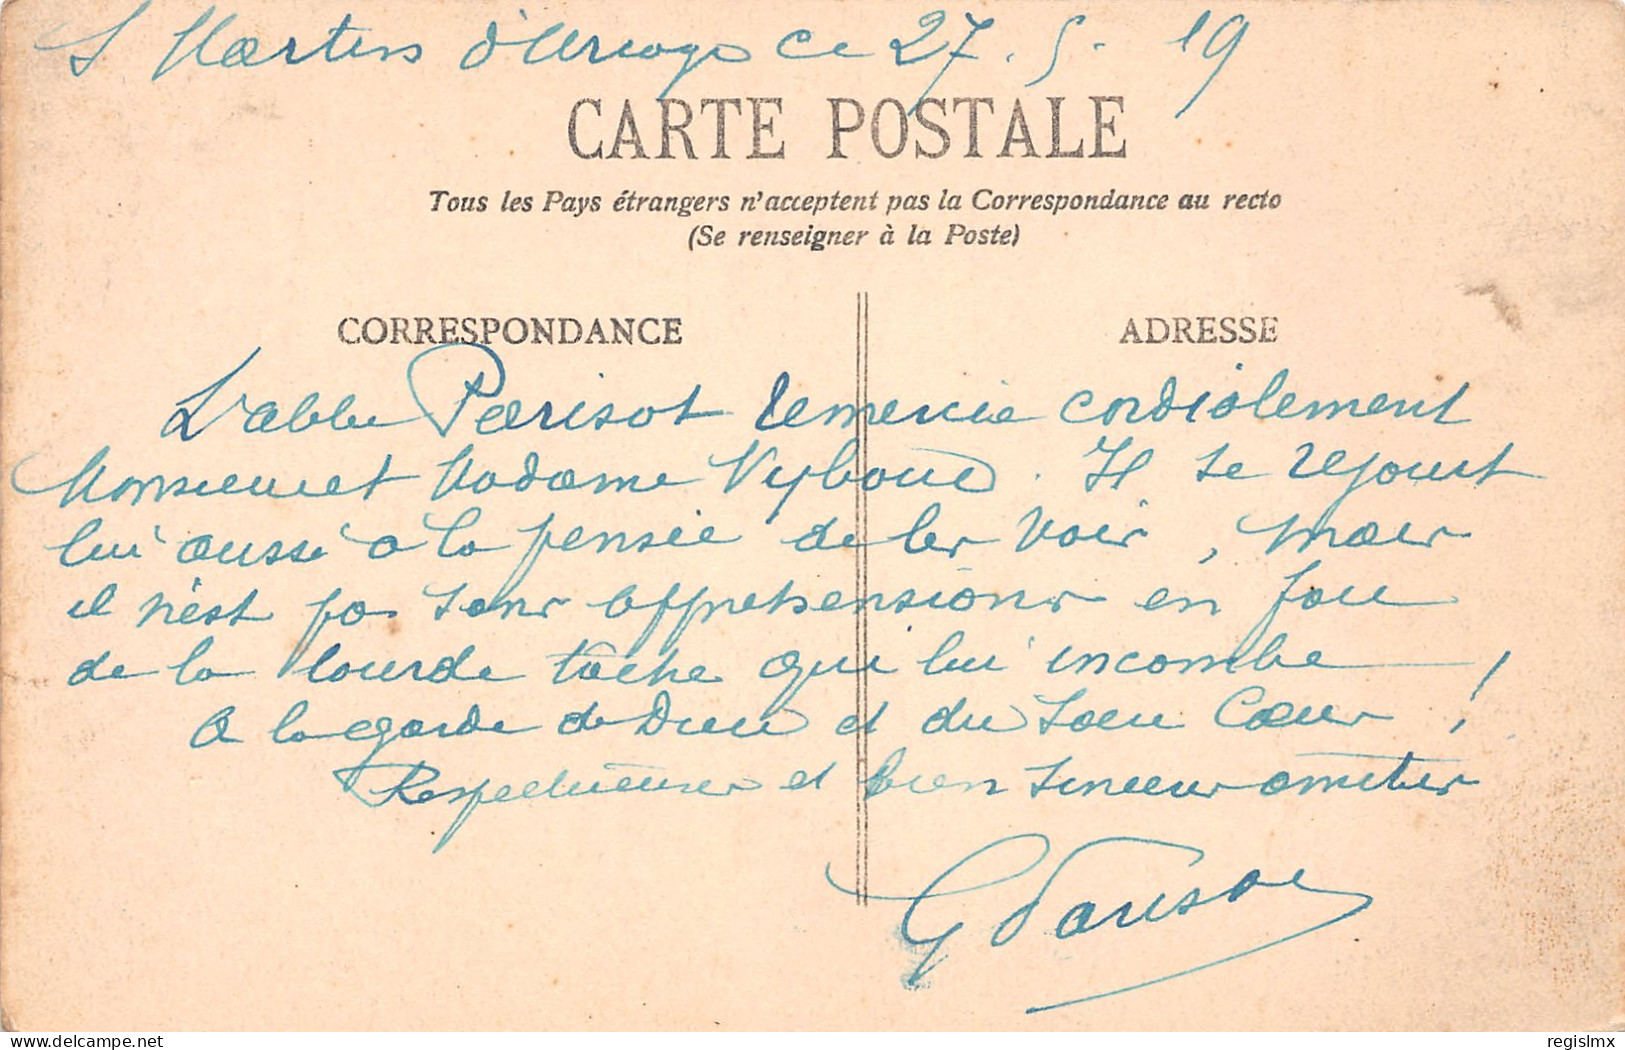 S Martin d'Uriage ce 27. 5. 19
CARTE POSTALE
Tous les Pays étrangers n'acceptent pas la Correspondance au recto
(Se renseigner à la Poste)
CORRESPONDANCE
ADRESSE
L'abbé Parisot remercie cordialement
Monsieur et Madame . Il se réjouit
lui aussi à la pensée de les voir, mais
il n'est pas sans appréhensions en face
de la lourde tâche qui lui incombe !
A la garde de Dieu et du Sacré Cœur !
Respectueuses et bien sincères amitiés
G Parisot
delcampe.net
regislmx